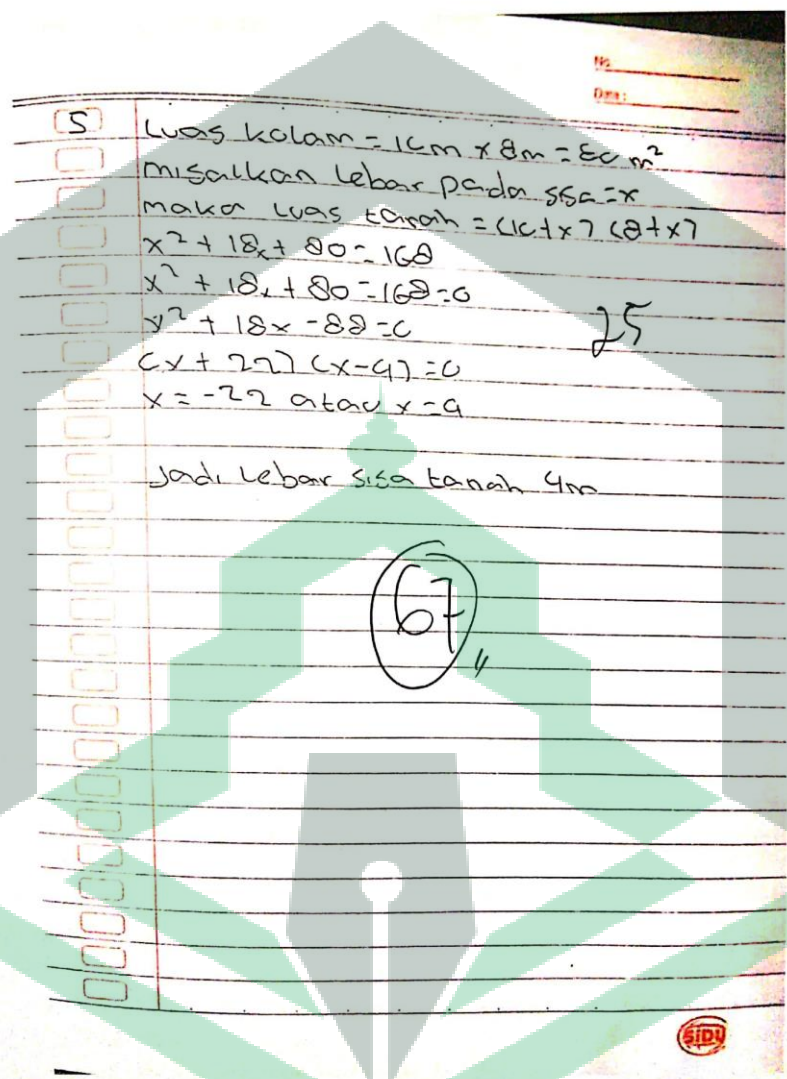 No
Date:
5
Luas kolam = 10m x 8m = 80 m²
misalkan lebar pada sisa = x
maka luas tanah = (10+x) (8+x)
x² + 18x + 80 = 168
x² + 18x + 80 - 168 = 0
x² + 18x - 88 = 0
25
(x + 22) (x-4) = 0
x = -22 atau x = 4
Jadi lebar sisa tanah 4m
67
SIDU